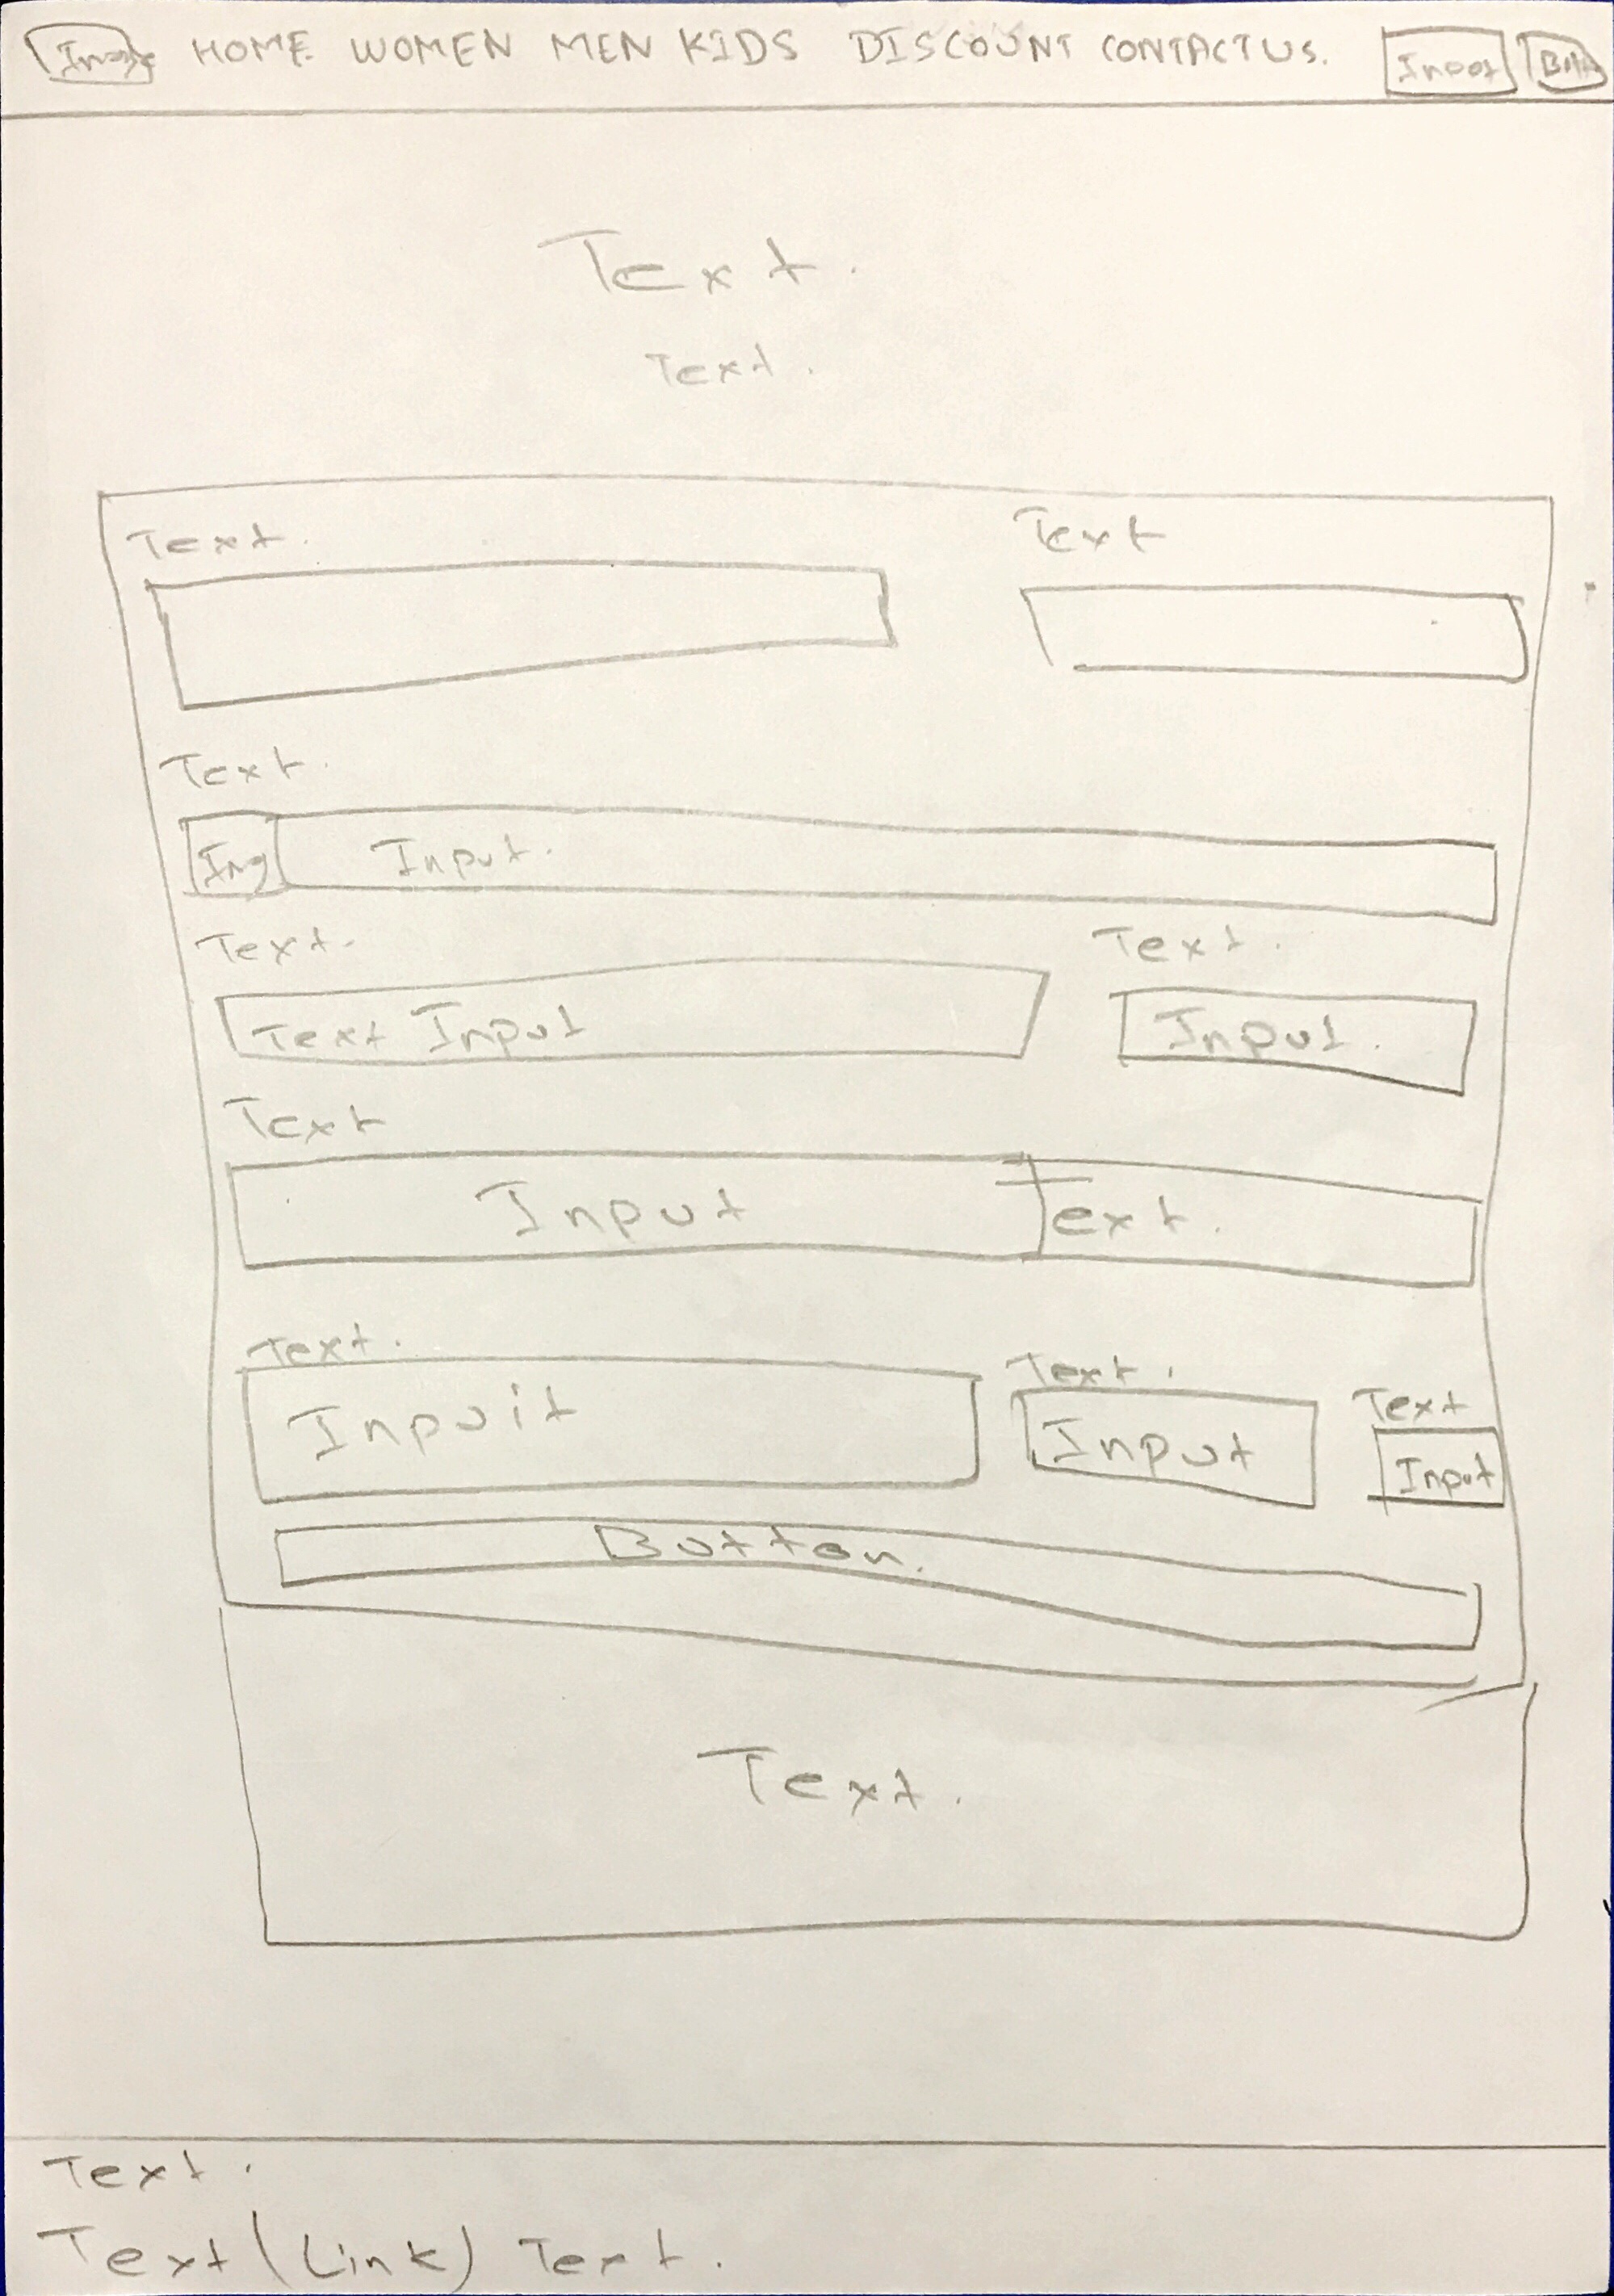 Image HOME. WOMEN MEN KIDS DISCOUNT CONTACT US. Input
Text.
Text.
Text. Text
Text.
Img Input.
Text. Text.
Text Input Input.
Text
Input Text.
Text. Text. Text
Inpuit Input Input
Button.
Text.
Text.
Text (Link) Text.